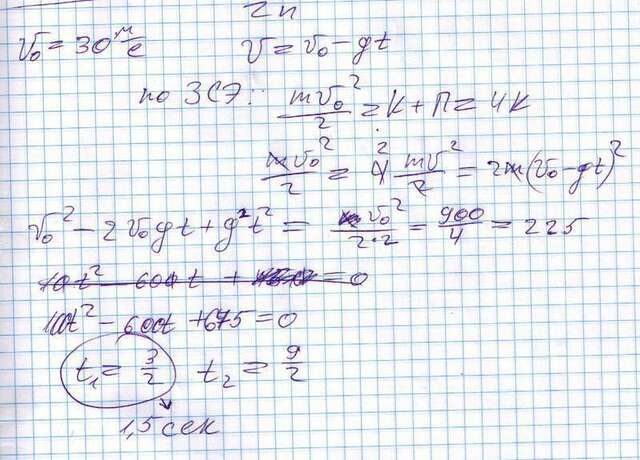 2п
v₀ = 30 м/с v = v₀ - gt
по ЗСЭ: mv₀²/2 = K + П = 4K
mv₀²/2 = 4 mv²/2 = 2m(v₀ - gt)²
v₀² - 2v₀gt + g²t² = v₀²/2·2 = 900/4 = 225
100t² - 600t + 675 = 0
t₁ = 3/2 t₂ = 9/2
1,5 сек